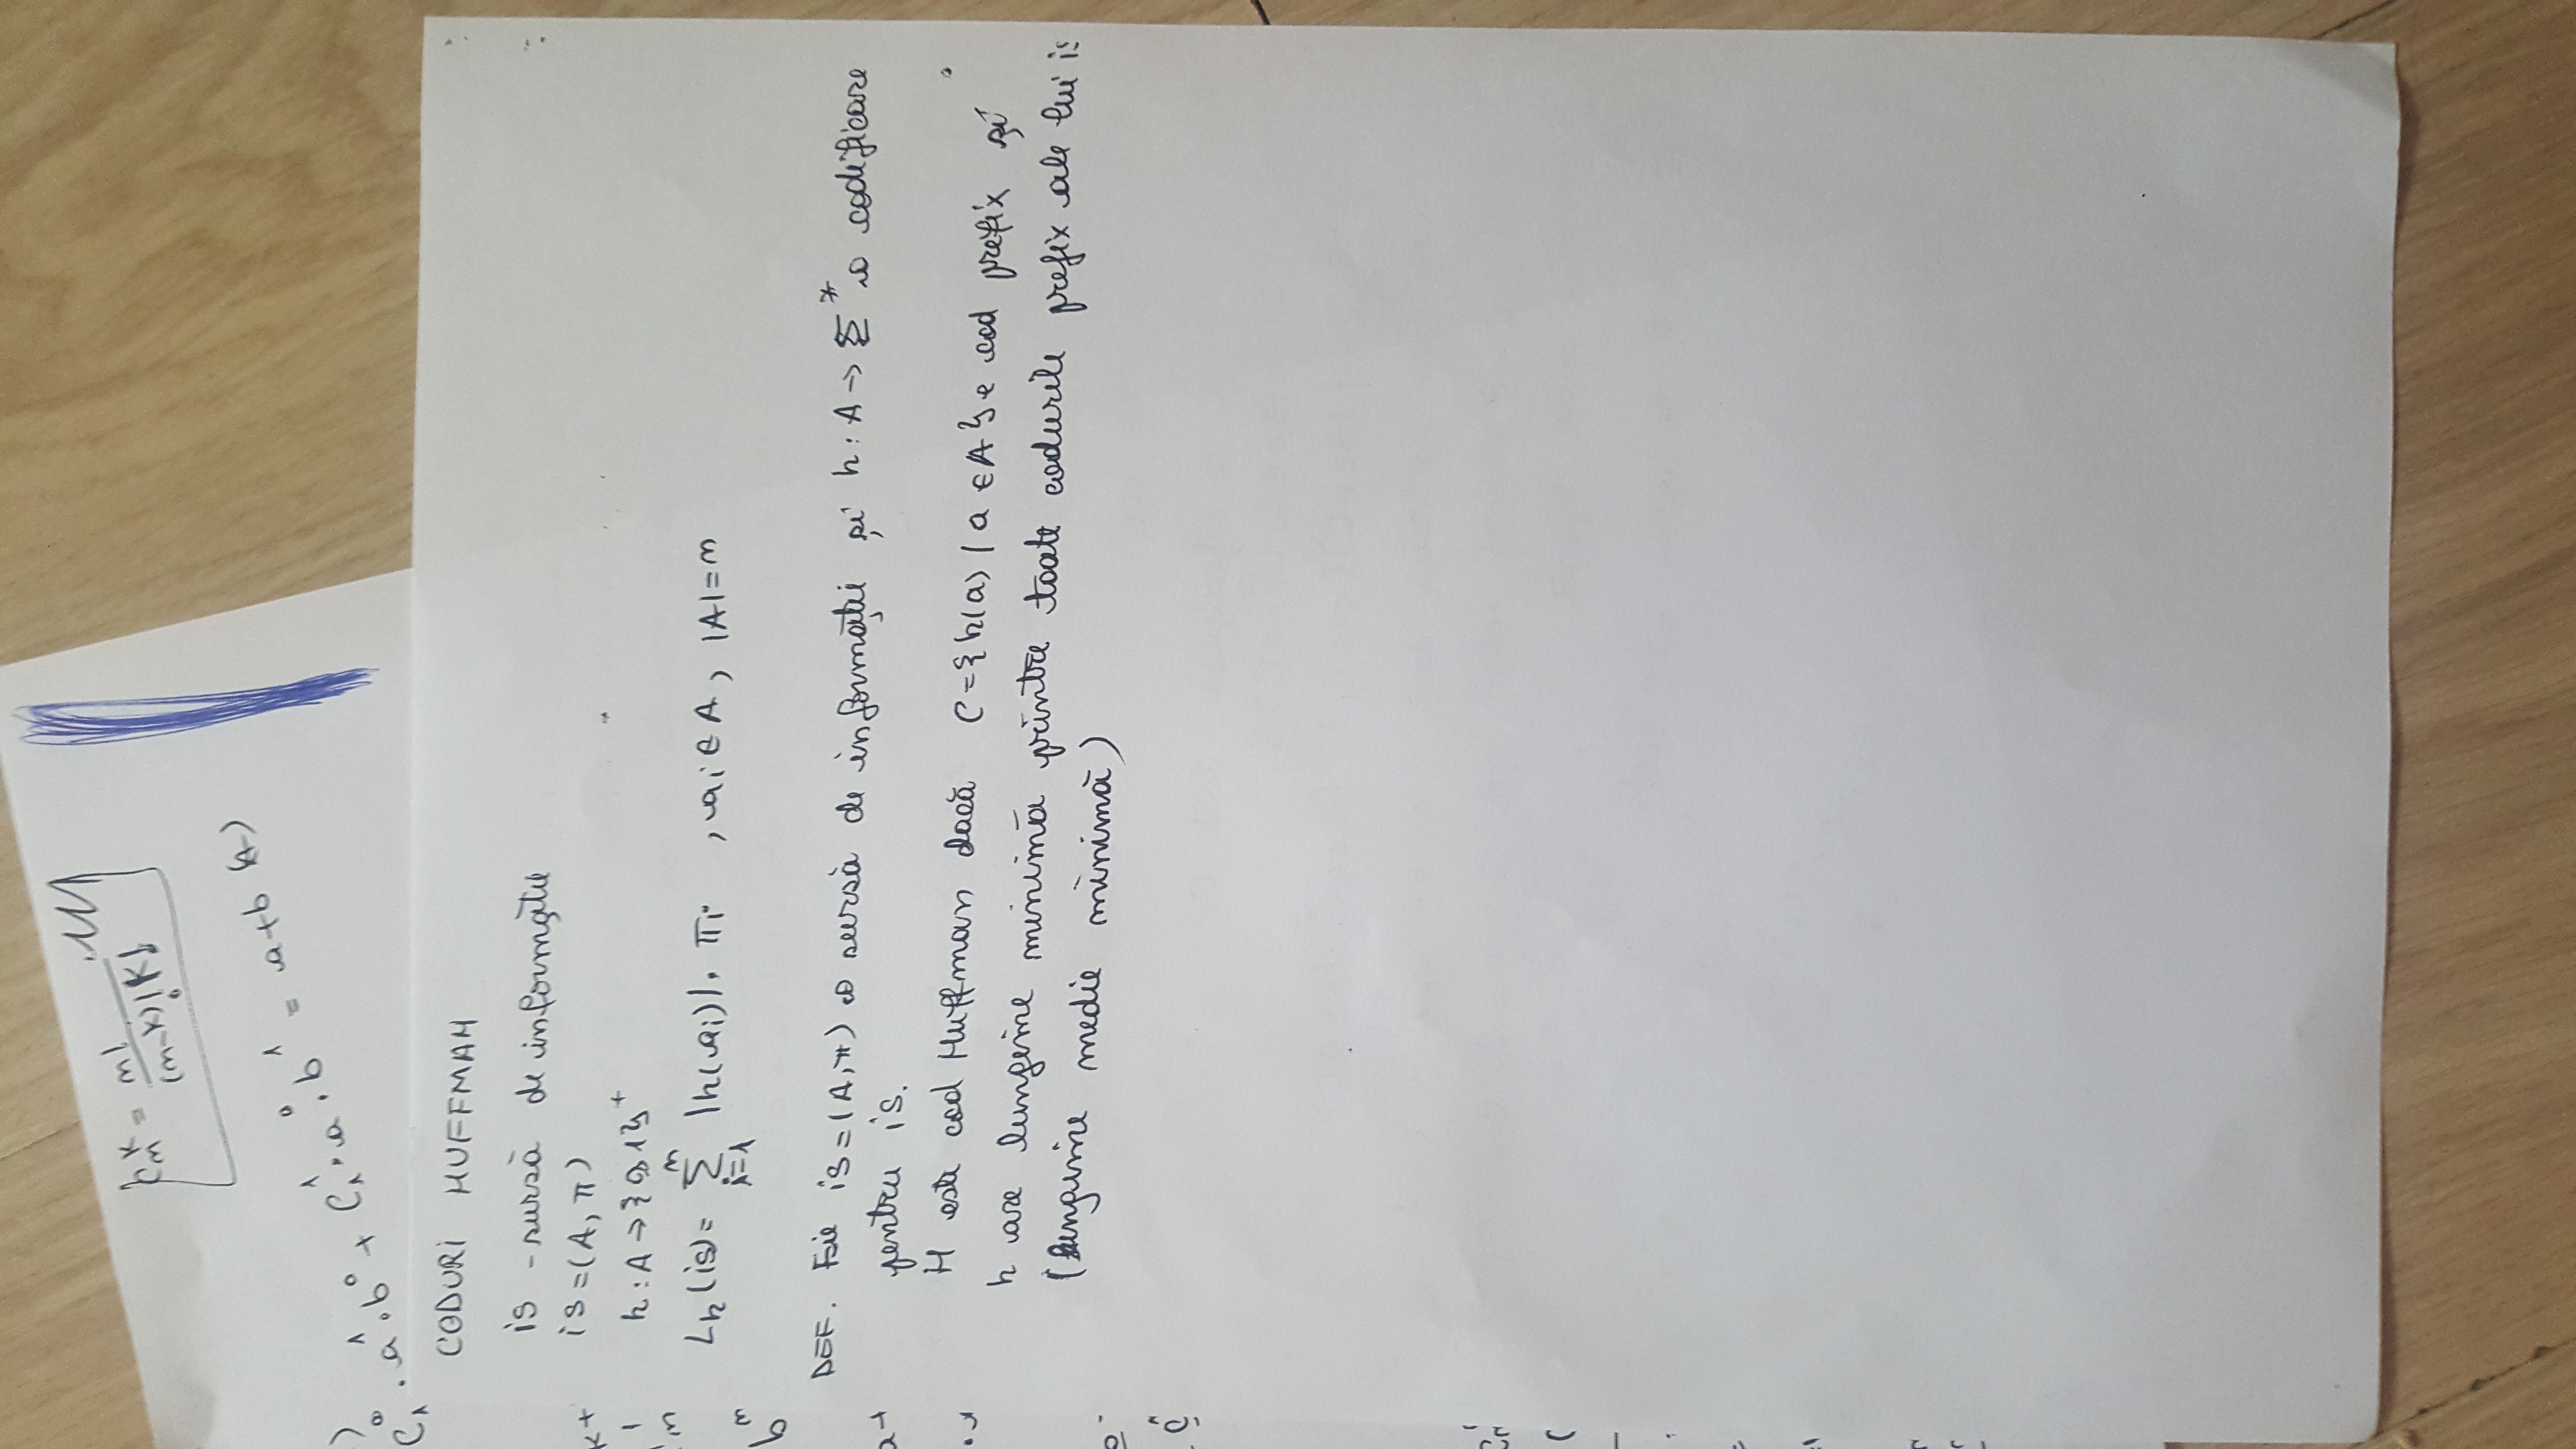 C_m^k = m! / (m-k)! k!
C_1^0 · a^1 · b^0 + C_1^1 · a^0 · b^1 = a+b (A)
CODURI HUFFMAN
is - sursă de informație
is = (A, π)
h : A → {0,1}^+
L_h(is) = Σ_{i=1}^{n} |h(a_i)| · π_i , a_i ∈ A, |A| = n
DEF. Fie is = (A, π) o sursă de informații și h : A → Σ^* o codificare
pentru is.
H este cod Huffman dacă C = {h(a) | a ∈ A} e cod prefix și
h are lungime minimă printre toate codurile prefix ale lui is
(lungime medie minimă)